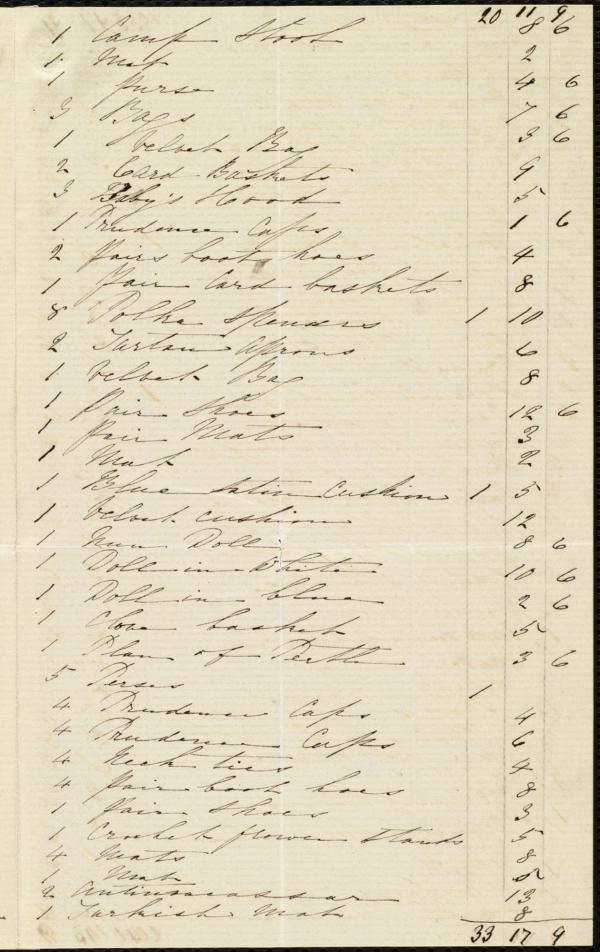 20 11 9
1 Camp Stool 8 6
1 Mat 2
1 purse 4 6
3 Bags 7 6
1 Velvet Bag 3 6
2 Card Baskets 9
3 Baby's Hood 5
1 Prudence Caps 1 6
2 pairs boot hoes 4
1 pair Card baskets 8
8 Polka Spencers 1 10
2 Tartan Aprons 6
1 Velvet Bag 8
1 Pair Shoes 12 6
1 pair Mats 3
1 Mat 2
1 Blue satin Cushion 1 5
1 Velvet cushion 12
1 Nun Doll 8 6
1 Doll in White 10 6
1 Doll in blue 2 6
1 Clove basket 5
1 Plan of Perth 3 6
5 Perses 1
4 Prudence Caps 4
4 Prudence Caps 6
4 Neck ties 4
4 pair boot hoes 8
1 pair Shoes 3
1 Crochet flower Stands 5
4 Mats 8
1 Mat 5
2 Antimacassar 13
1 Turkish Mat 8
33 17 9